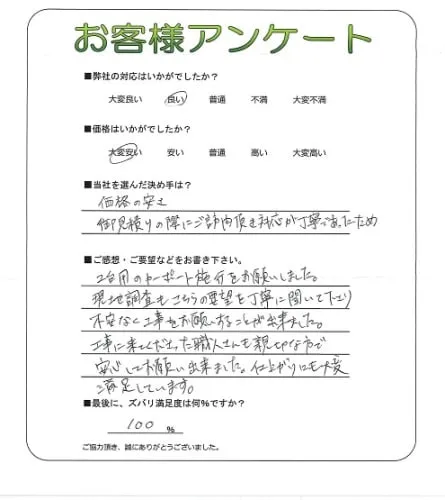 お客様アンケート
■弊社の対応はいかがでしたか?
大変良い 良い 普通 不満 大変不満
■価格はいかがでしたか?
大変安い 安い 普通 高い 大変高い
■当社を選んだ決め手は?
価格の安さ
御見積りの際にご訪問頂き対応が丁寧であったため
■ご感想・ご要望などをお書き下さい。
2台用のカーポート施行をお願いしました。
現地調査もこちらの要望を丁寧に聞いて下さり
不安なく工事をお願いすることが出来ました。
工事に来てくださった職人さんも親切な方で
安心してお願い出来ました。仕上がりにも大変
満足しています。
■最後に、ズバリ満足度は何%ですか?
100 %
ご協力頂き、誠にありがとうございました。